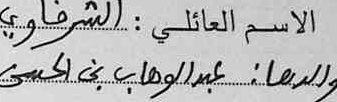 الاسم العائلي : الشرفاوي
والدها: عبدالوهاب بن الحسن